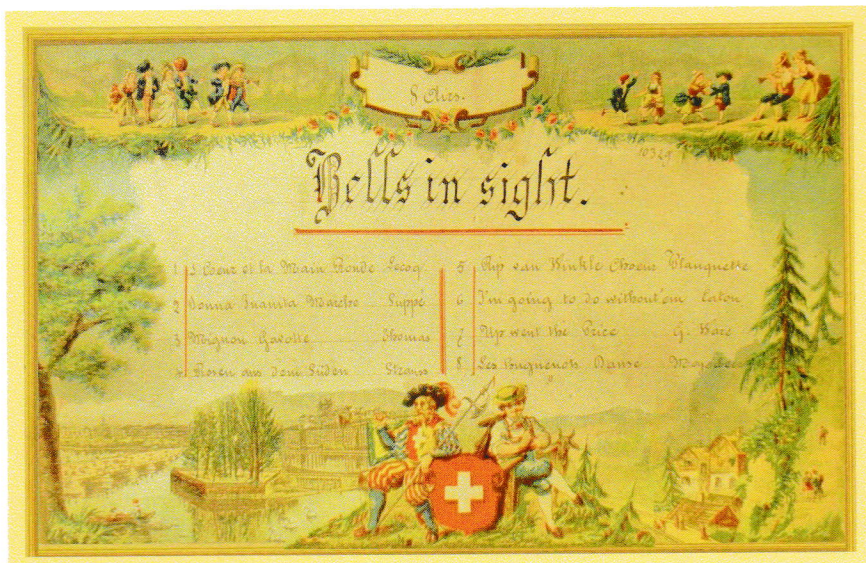 8 Airs.
10365
Bells in sight.
1 L Coeur et la Main Ronde Lecoq
2 Donna Juanita Marche Suppé
3 Mignon Gavotte Thomas
4 Rosen aus dem Süden Strauss
5 Rip van Winkle Choeur Planquette
6 I'm going to do without'em Eaton
7 Up went the Price G. Ware
8. Les Huguenots Danse